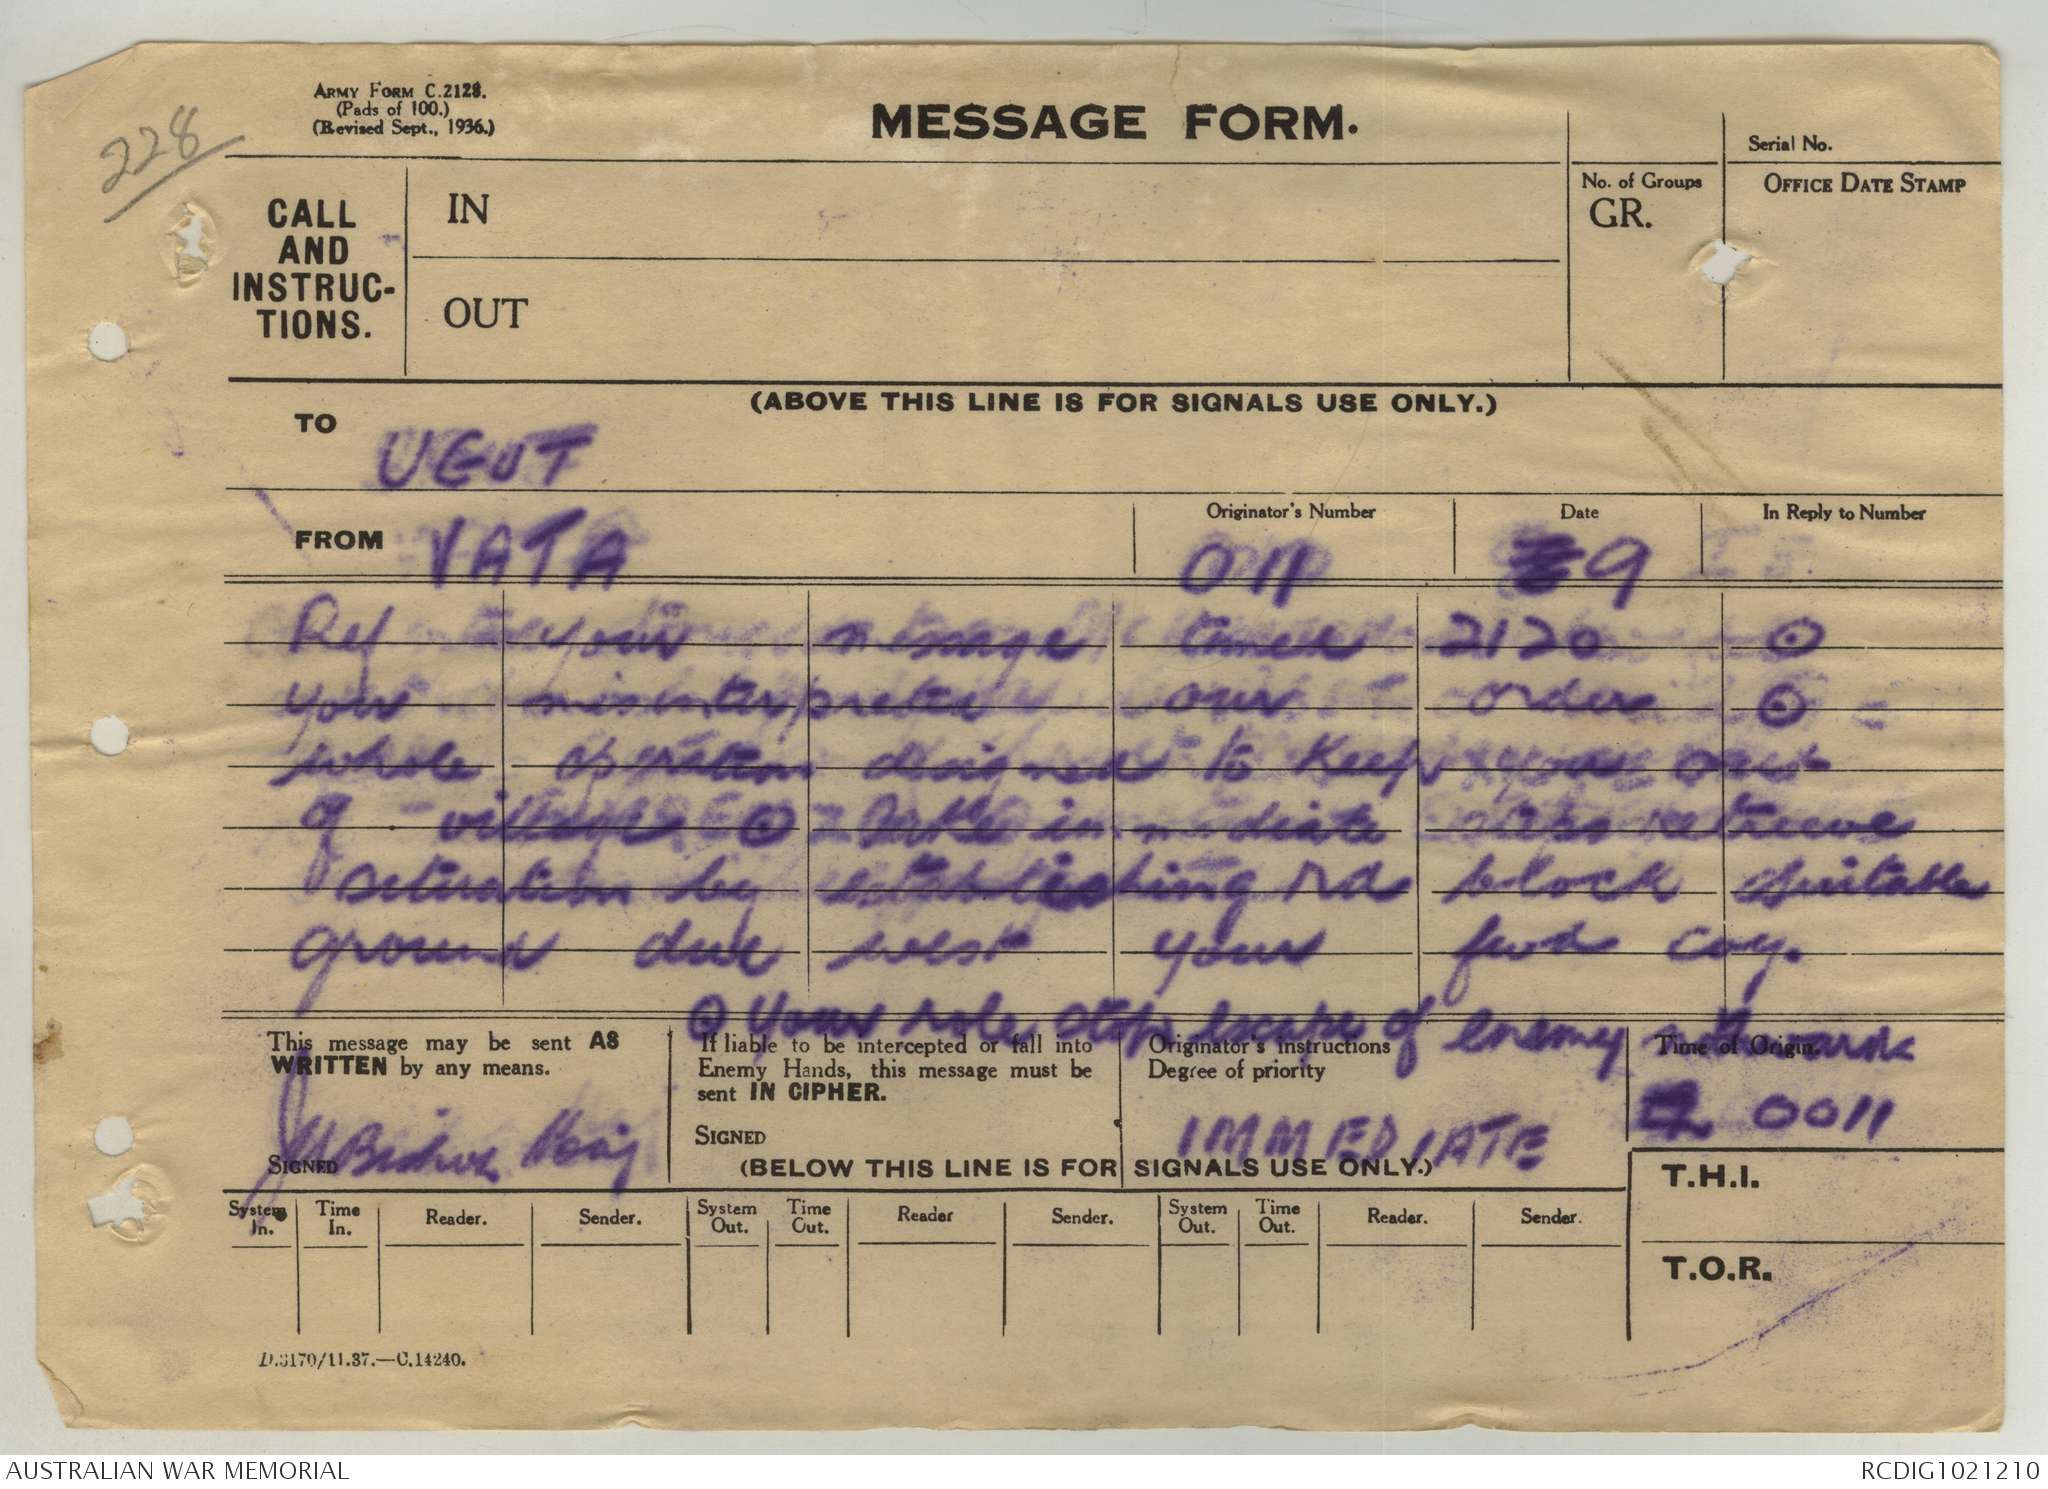 228
ARMY FORM C.2128.
(Pads of 100.)
(Revised Sept., 1936.)
MESSAGE FORM.
Serial No.
CALL AND INSTRUC-TIONS.
IN
OUT
No. of Groups
GR.
OFFICE DATE STAMP
(ABOVE THIS LINE IS FOR SIGNALS USE ONLY.)
TO UGUT
FROM VATA
Originator's Number
O11
Date
9
In Reply to Number
Ref your message timed 2120 ⊙
you misinterpreted our orders ⊙
whole operation designed to keep you out
of village ⊙ take immediate steps retrieve
situation by establishing rd block suitable
ground due west your fwd coy.
⊙ Your role stop escape of enemy northwards
This message may be sent AS
WRITTEN by any means.
SIGNED
If liable to be intercepted or fall into
Enemy Hands, this message must be
sent IN CIPHER.
SIGNED
Originator's instructions
Degree of priority
IMMEDIATE
Time of Origin.
0011
(BELOW THIS LINE IS FOR SIGNALS USE ONLY.)
T.H.I.
T.O.R.
System In. Time In. Reader. Sender. System Out. Time Out. Reader Sender. System Out. Time Out. Reader. Sender.
D.3170/11.37.—C.14240.
AUSTRALIAN WAR MEMORIAL
RCDIG1021210